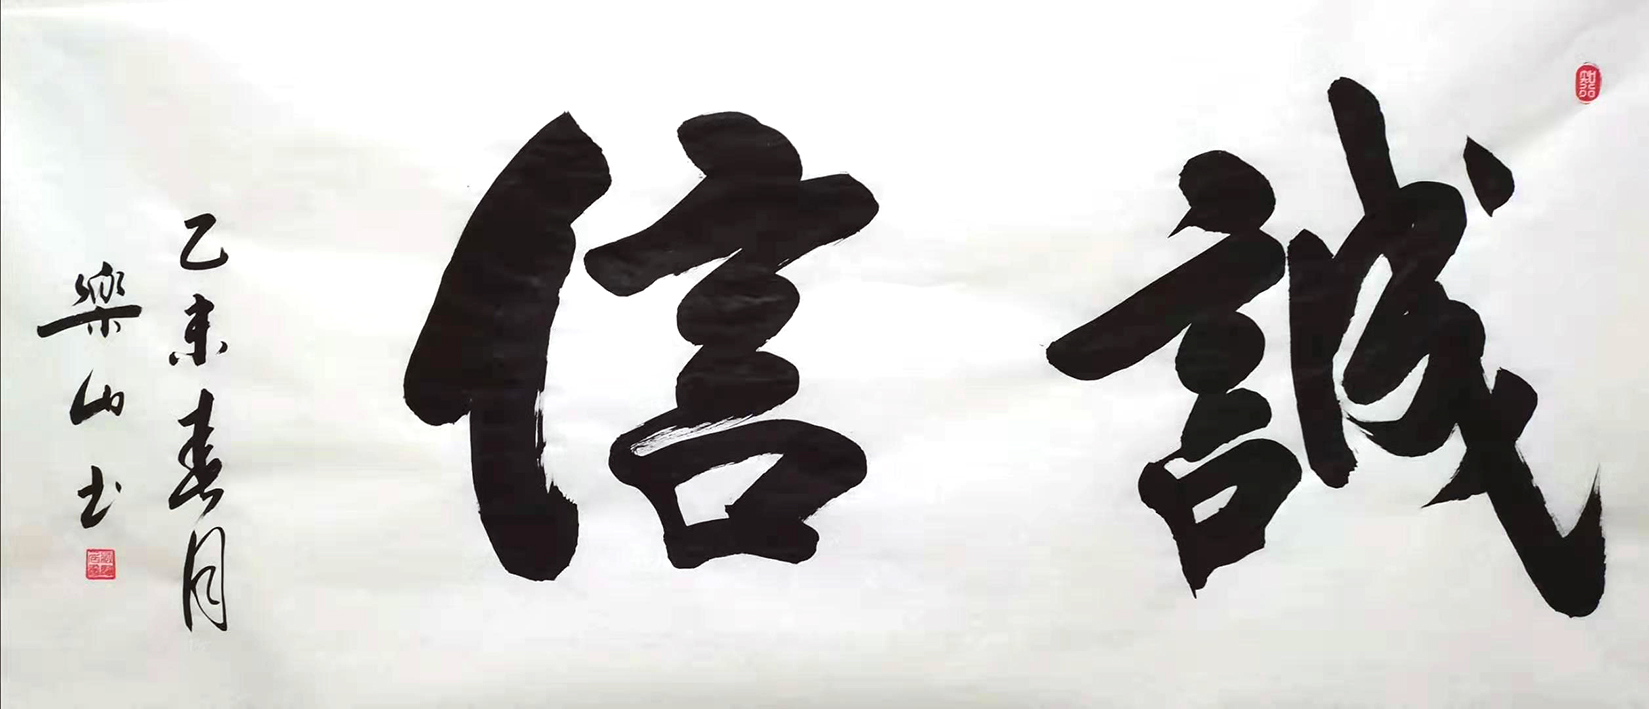 誠信
乙未春月
樂山书